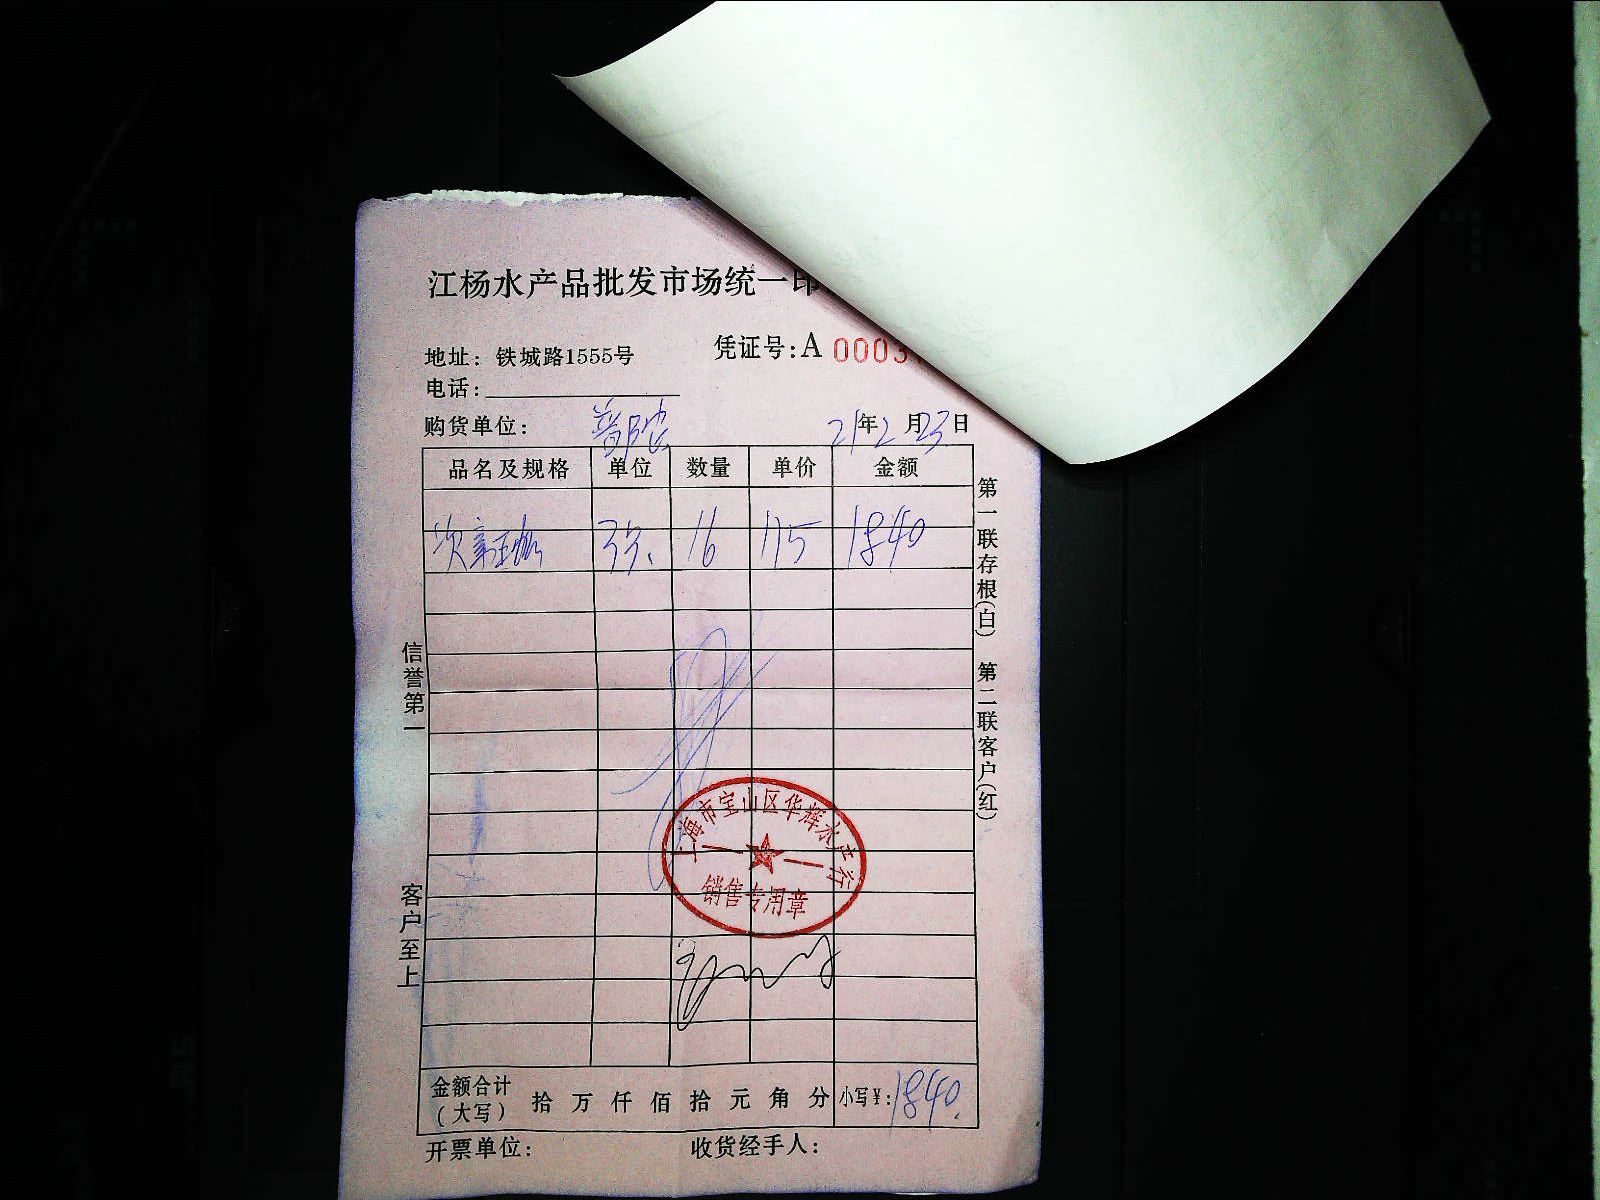 江杨水产品批发市场统一印
地址：铁城路1555号
凭证号：A 0003
电话：
购货单位：
21年2月23日
品名及规格 单位 数量 单价 金额
16 115 1840
第一联存根(白) 第二联客户(红)
信誉第一
客户至上
上海市宝山区华辉水产行
销售专用章
金额合计（大写） 拾 万 仟 佰 拾 元 角 分 小写¥：1840.
开票单位：
收货经手人：